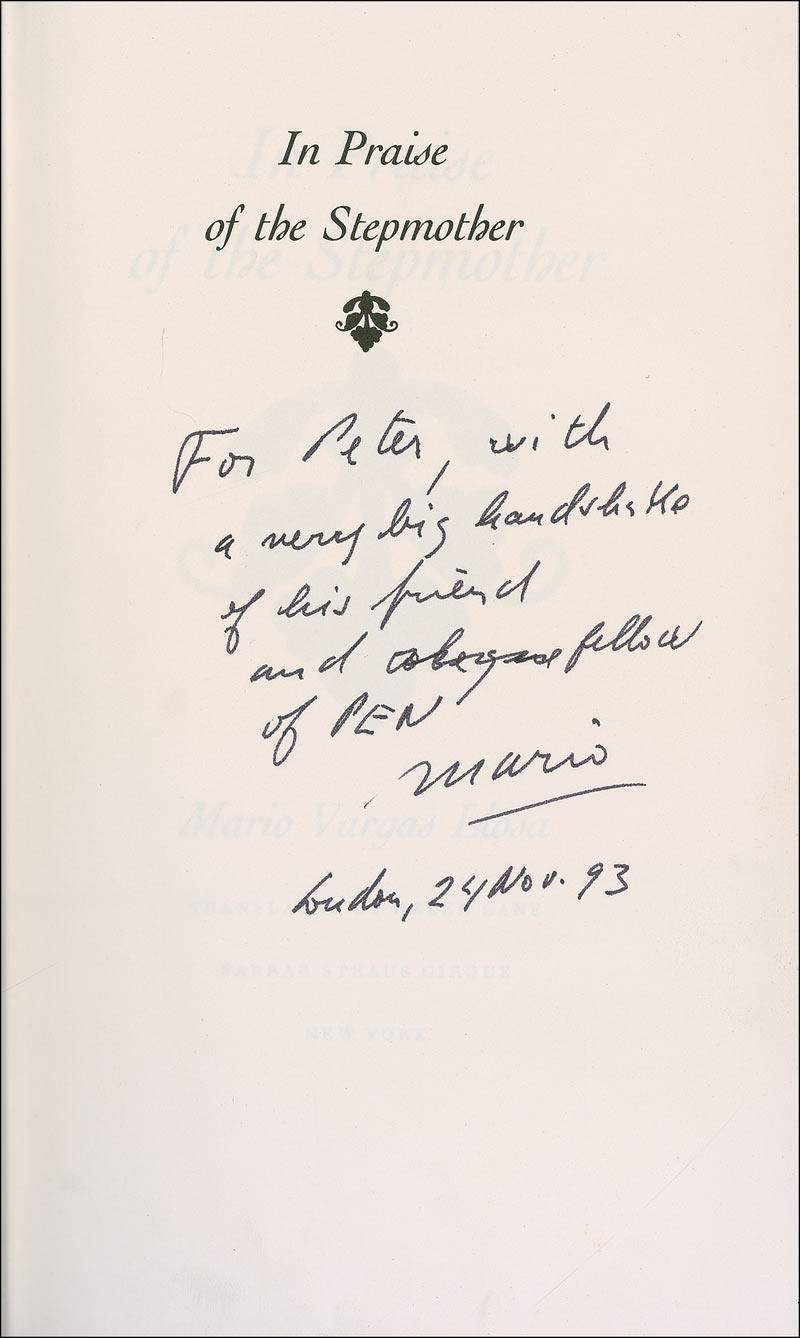 In Praise
of the Stepmother
For Peter, with
a very big handshake
of his friend
and fellow
of PEN
Mario
Mario Vargas Llosa
London, 24 Nov. 93
FARRAR STRAUS GIROUX
NEW YORK